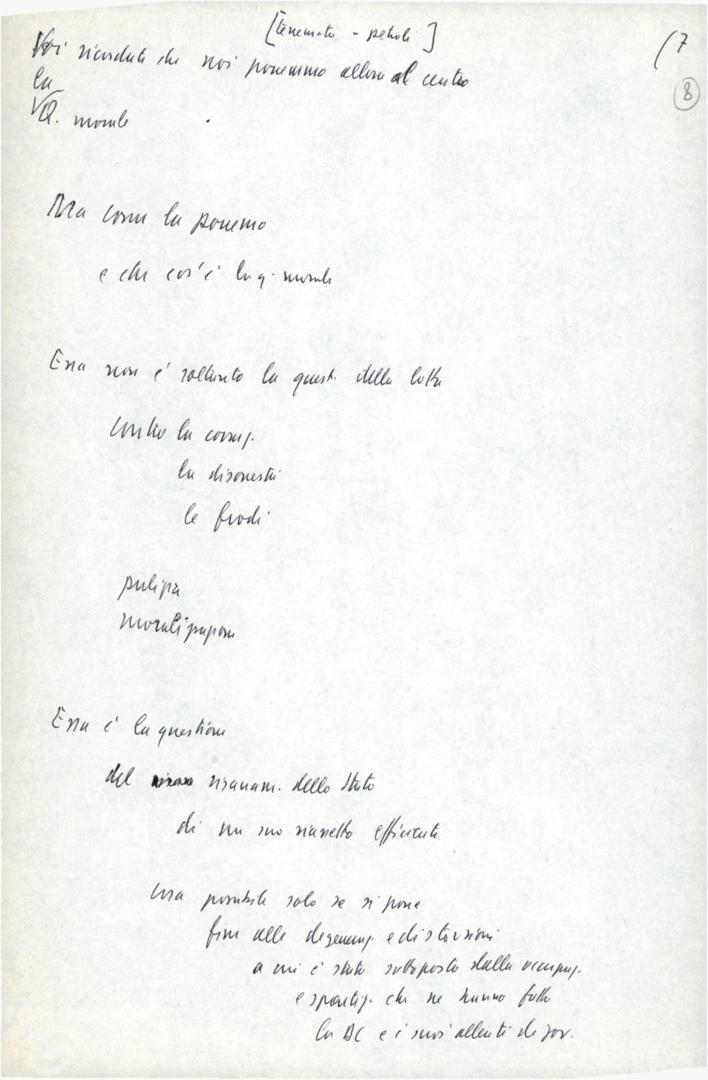 [terremoto - petroli]
(7
8
Voi ricordate che noi ponemmo allora al centro
la
Q. morale
Ma come la ponemo
e che cos'è la q. morale
Essa non è soltanto la quest. della lotta
contro la corruz.
la disonestà
le frodi
pulizia
moralizzazione
Essa è la questione
del risanam. dello Stato
di un suo riassetto efficiente
cosa possibile solo se si pone
fine alle degeneraz. e distorsioni
a cui è stato sottoposto dalla occupaz.
e spartiz. che ne hanno fatto
la DC e i suoi alleati di gov.